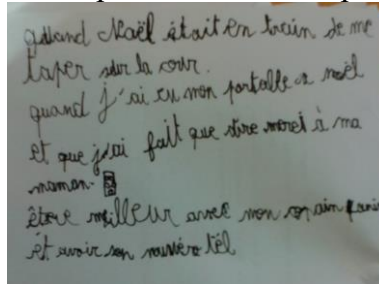 quand Noël était en train de me
taper sur la cour.
quand j'ai eu mon portable a noël
et que j'ai fait que dire merci à ma
maman.
être meilleur avec mon copain
et avoir son numéro tél